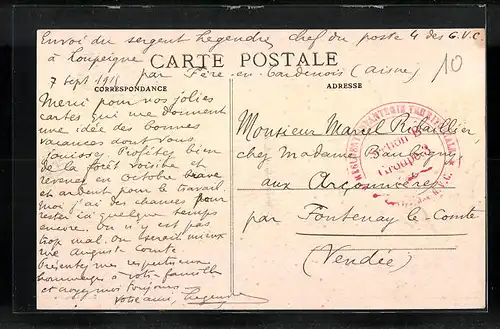 Envoi du sergent Legendre, chef du poste 4 des G.V.C.
à Loupeigne
CARTE POSTALE
10
7 Sept 1915 par Fère-en-Tardenois (Aisne)
CORRESPONDANCE
ADRESSE
Merci pour vos jolies
cartes qui me donnent
une idée des bonnes
vacances dont vous
jouissez. Profitez bien
de la forêt voisine et
revenez en octobre brave
et ardent pour le travail.
Moi j'ai des chances pour
rester ici quelque temps
encore. On n'y est pas
trop mal. On serait mieux
rue Auguste Comte.
Présentez mes respectueux
hommages à votre famille
et croyez moi toujours
votre ami, Legendre
Monsieur Marcel Rabaillier
chez Madame
aux
par Fontenay-le-Comte
(Vendée)
INFANTERIE TERRITORIALE